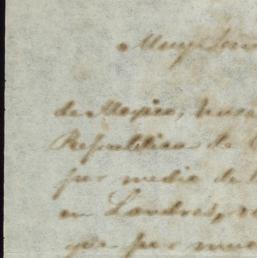 Muy
de Mexico,
Republica de
por medio de
en Londres,
que por